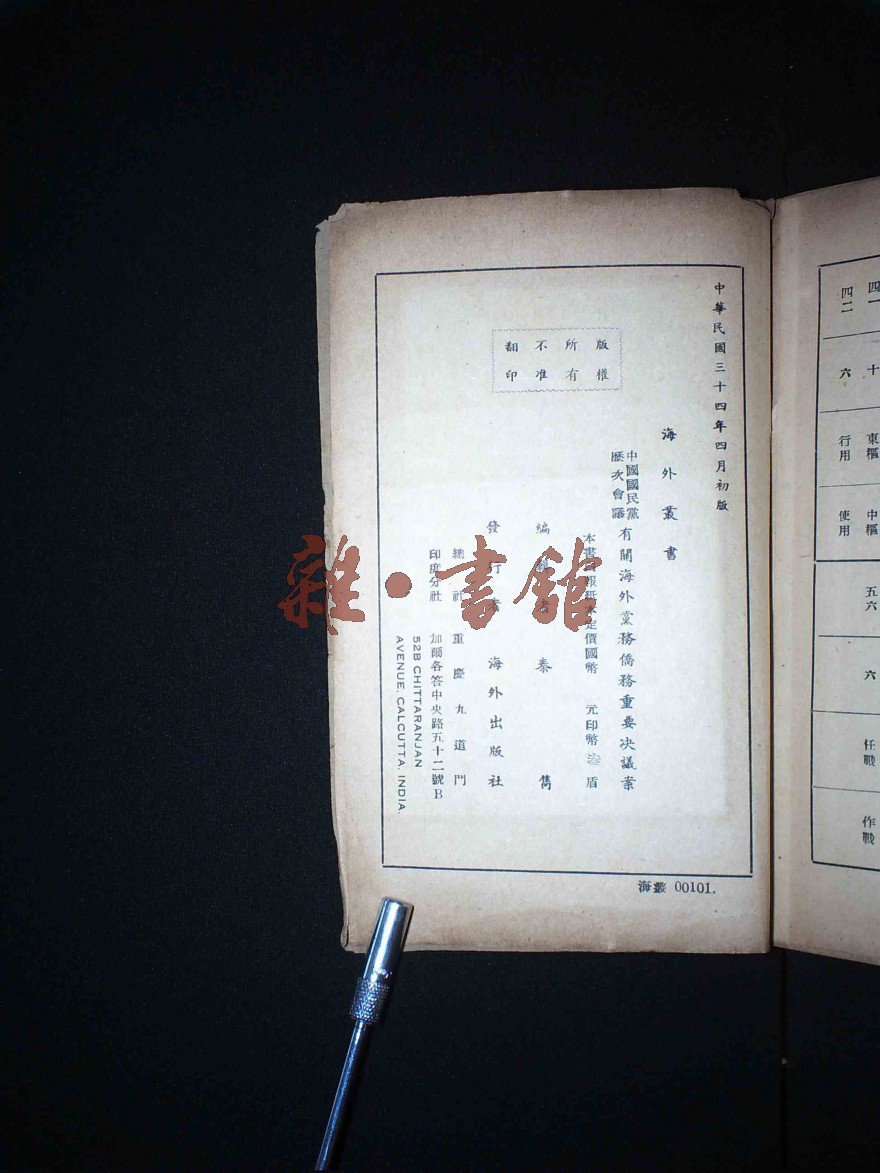 中華民國三十四年四月初版
版權
所有
不准
翻印
海外叢書
中國國民黨
歷次會議
有關海外黨務僑務重要决議案
本書
定價國幣 元印幣 盾
編 者 秦雋
發行者 海外出版社
總社 重慶九道門
印度分社 加爾各答中央路五十二號B
52B CHITTARANJAN
AVENUE, CALCUTTA, INDIA.
海叢 00101.
四一 十 東樞 中樞 五六 六 任職 作戰
四二 六 行用 使用
雜·書館